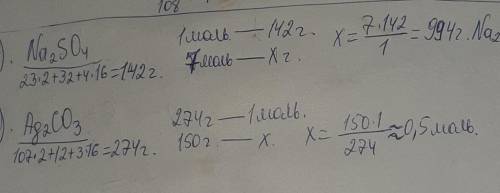 108
). Na₂SO₄ 1 моль — 142 г. x = 7·142 / 1 = 994 г. Na₂
23·2+32+4·16=142 г. 7 моль — x г.
). Ag₂CO₃ 274 г — 1 моль.
107·2+12+3·16=274 г. 150 г — x. x = 150·1 / 274 ≈ 0,5 моль.